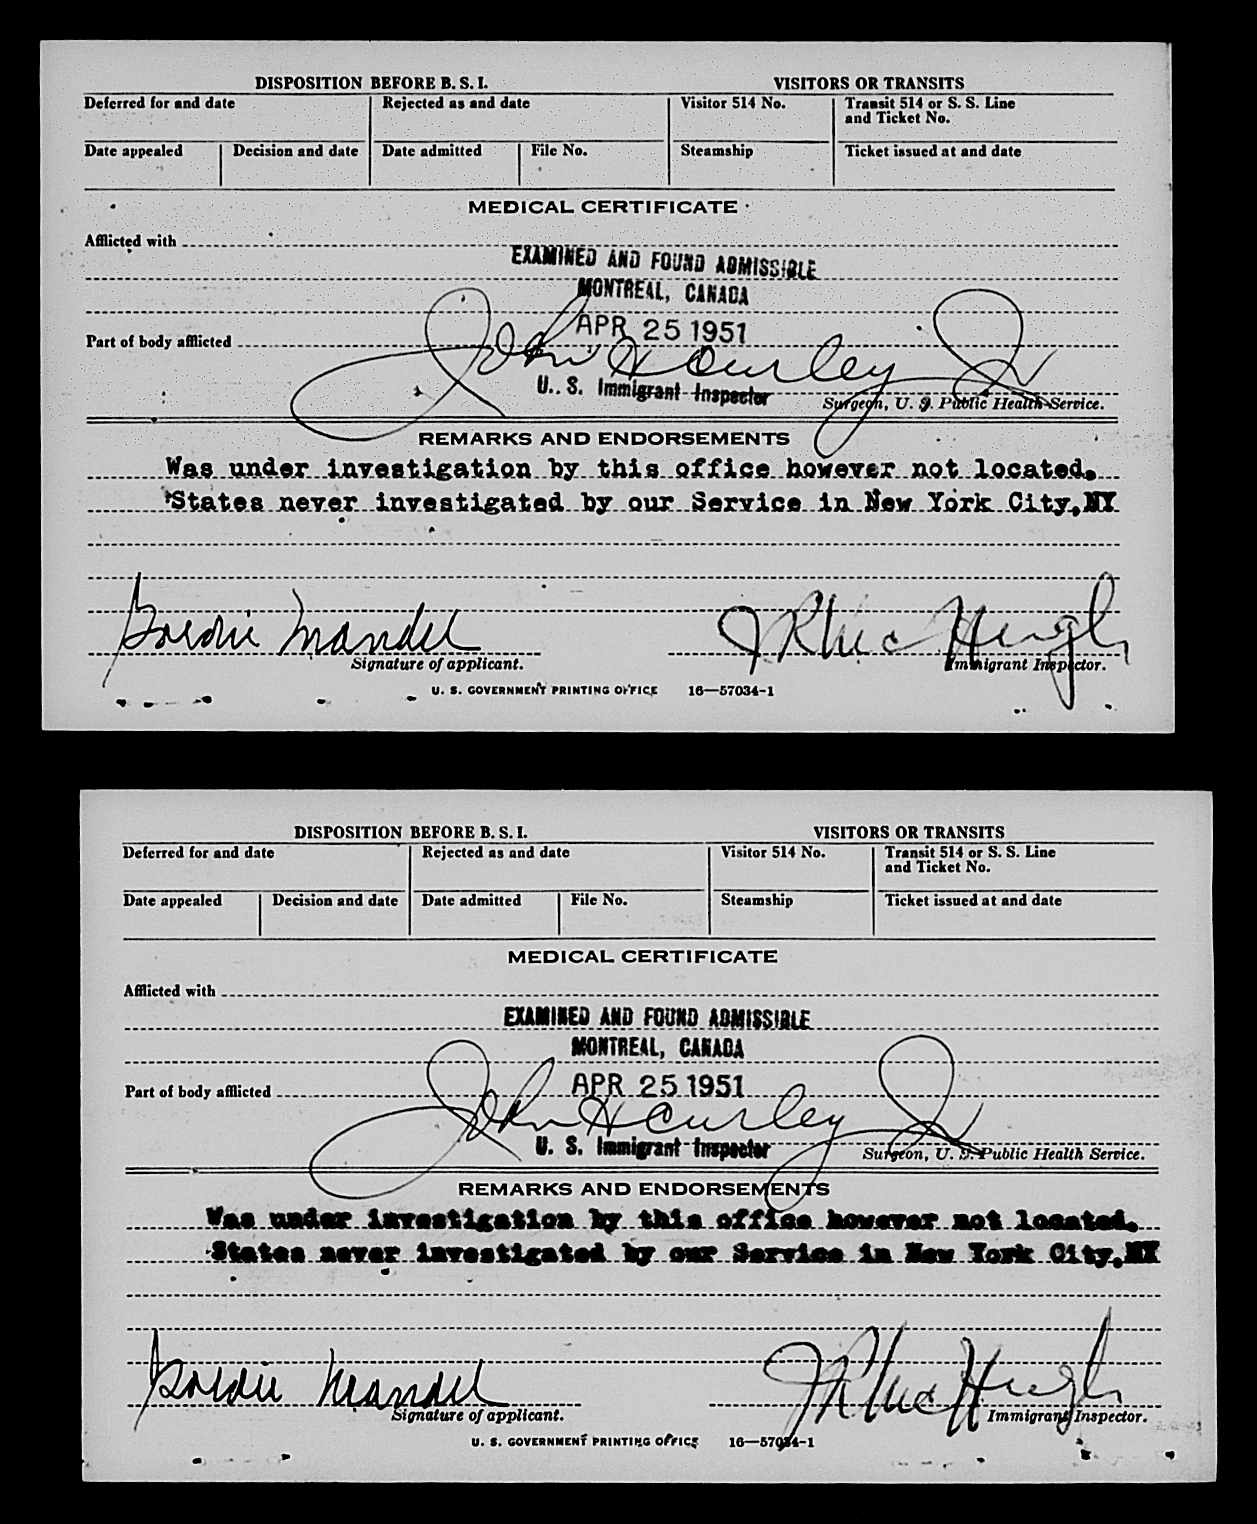 DISPOSITION BEFORE B. S. I.
VISITORS OR TRANSITS
Deferred for and date
Rejected as and date
Visitor 514 No.
Transit 514 or S. S. Line
and Ticket No.
Date appealed
Decision and date
Date admitted
File No.
Steamship
Ticket issued at and date
MEDICAL CERTIFICATE
Afflicted with
EXAMINED AND FOUND ADMISSIBLE
MONTREAL, CANADA
APR 25 1951
Part of body afflicted
John H Curley Jr
U. S. Immigrant Inspector
Surgeon, U. S. Public Health Service.
REMARKS AND ENDORSEMENTS
Was under investigation by this office however not located.
States never investigated by our Service in New York City,NY
Goldie Mandel
Signature of applicant.
Immigrant Inspector.
U. S. GOVERNMENT PRINTING OFFICE 16—57034-1
DISPOSITION BEFORE B. S. I.
VISITORS OR TRANSITS
Deferred for and date
Rejected as and date
Visitor 514 No.
Transit 514 or S. S. Line
and Ticket No.
Date appealed
Decision and date
Date admitted
File No.
Steamship
Ticket issued at and date
MEDICAL CERTIFICATE
Afflicted with
EXAMINED AND FOUND ADMISSIBLE
MONTREAL, CANADA
APR 25 1951
Part of body afflicted
John H Curley Jr
U. S. Immigrant Inspector
Surgeon, U. S. Public Health Service.
REMARKS AND ENDORSEMENTS
Was under investigation by this office however not located.
States never investigated by our Service in New York City,NY
Goldie Mandel
Signature of applicant.
Immigrant Inspector.
U. S. GOVERNMENT PRINTING OFFICE 16—57034-1